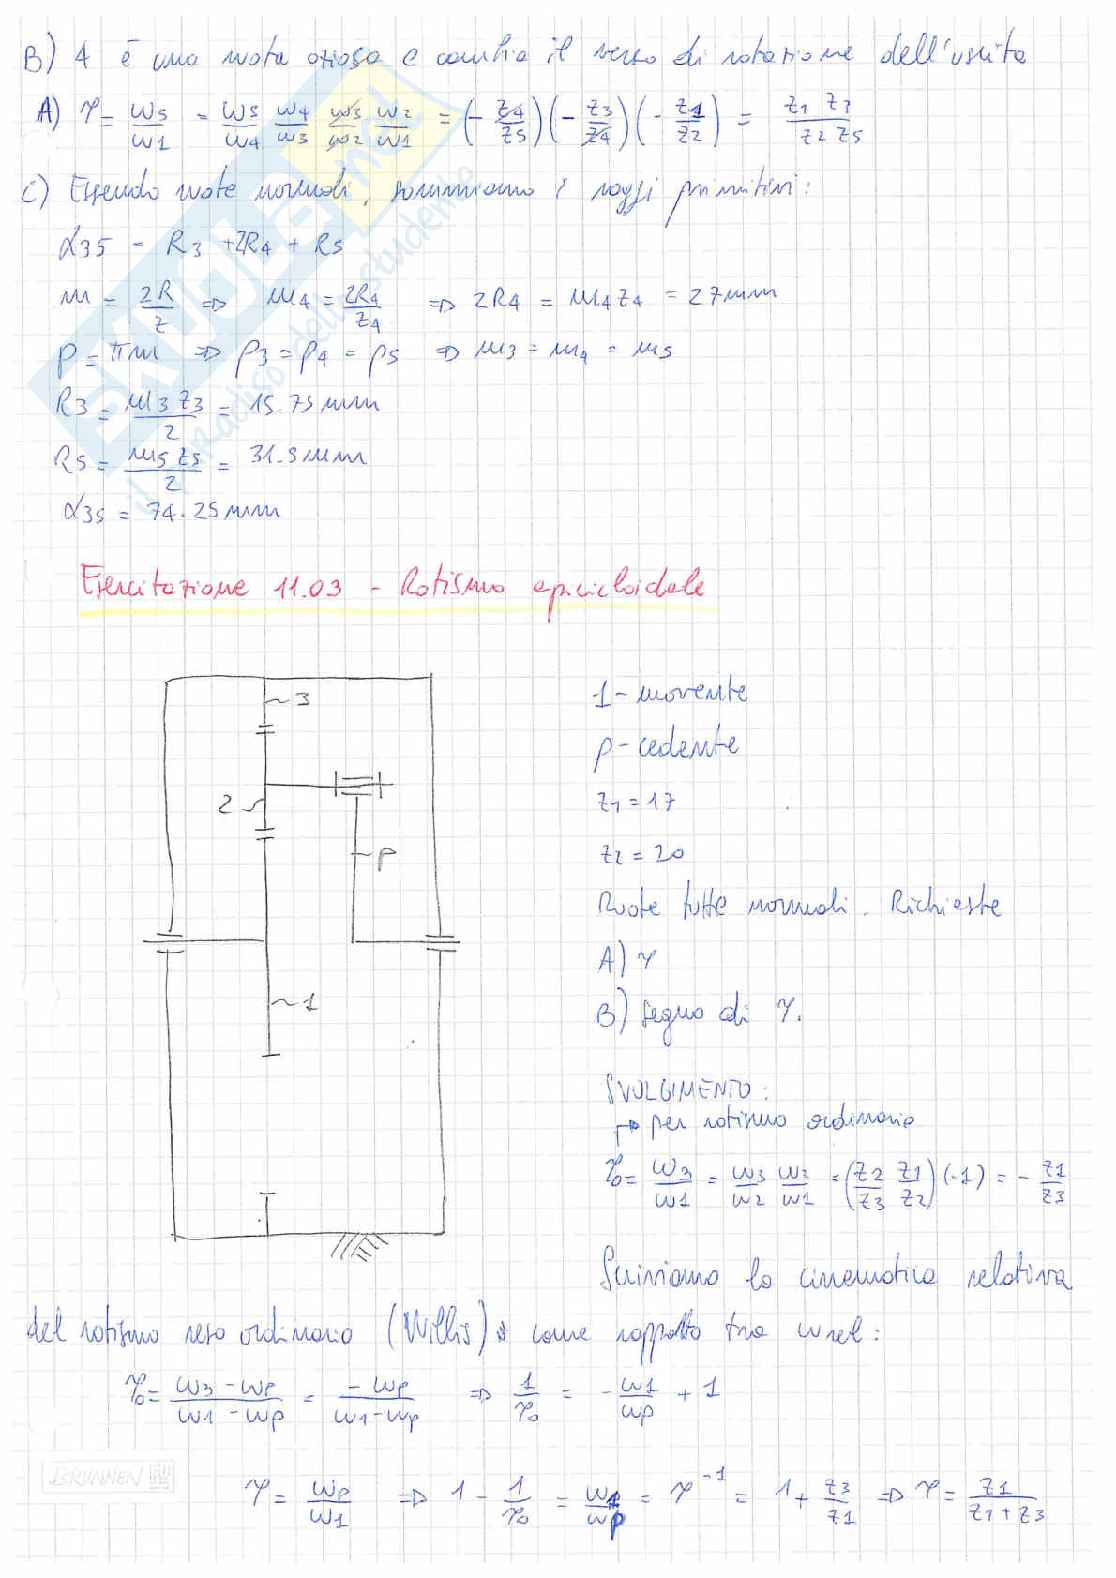 B) 4 è una ruota oziosa e cambia il verso di rotazione dell'uscita
A) τ = ω5/ω1 = ω5/ω4 ω4/ω3 ω3/ω2 ω2/ω1 = (- z4/z5)(- z3/z4)(- z1/z2) = z1 z3 / z2 z5
C) Essendo ruote normali, sommiamo i raggi primitivi:
α35 = R3 + 2R4 + R5
m = 2R/z ⇒ m4 = 2R4/z4 ⇒ 2R4 = m4z4 = 27mm
p = πm ⇒ p3 = p4 = p5 ⇒ m3 = m4 = m5
R3 = m3 z3/2 = 15.75mm
R5 = m5 z5/2 = 31.5mm
α35 = 74.25mm
SKUOLA.NET
il paradiso dello studente
Esercitazione 11.03 - Rotismo epicicloidale
3
2
p
1
1 - movente
p - cedente
z1 = 17
z2 = 20
Ruote tutte normali. Richieste
A) τ
B) segno di τ.
SVOLGIMENTO:
↱ per rotismo ordinario
τ0 = ω3/ω1 = ω3/ω2 ω2/ω1 = (z2/z3 z1/z2)(-1) = - z1/z3
Scriviamo la cinematica relativa
del rotismo reso ordinario (Willis), come rapporto tra ωrel:
τ0 = ω3 - ωp / ω1 - ωp = -ωp / ω1 - ωp ⇒ 1/τ0 = - ω1/ωp + 1
BRUNNEN
τ = ωp/ω1 ⇒ 1 - 1/τ0 = ω1/ωp = τ⁻¹ = 1 + z3/z1 ⇒ τ = z1 / z1 + z3